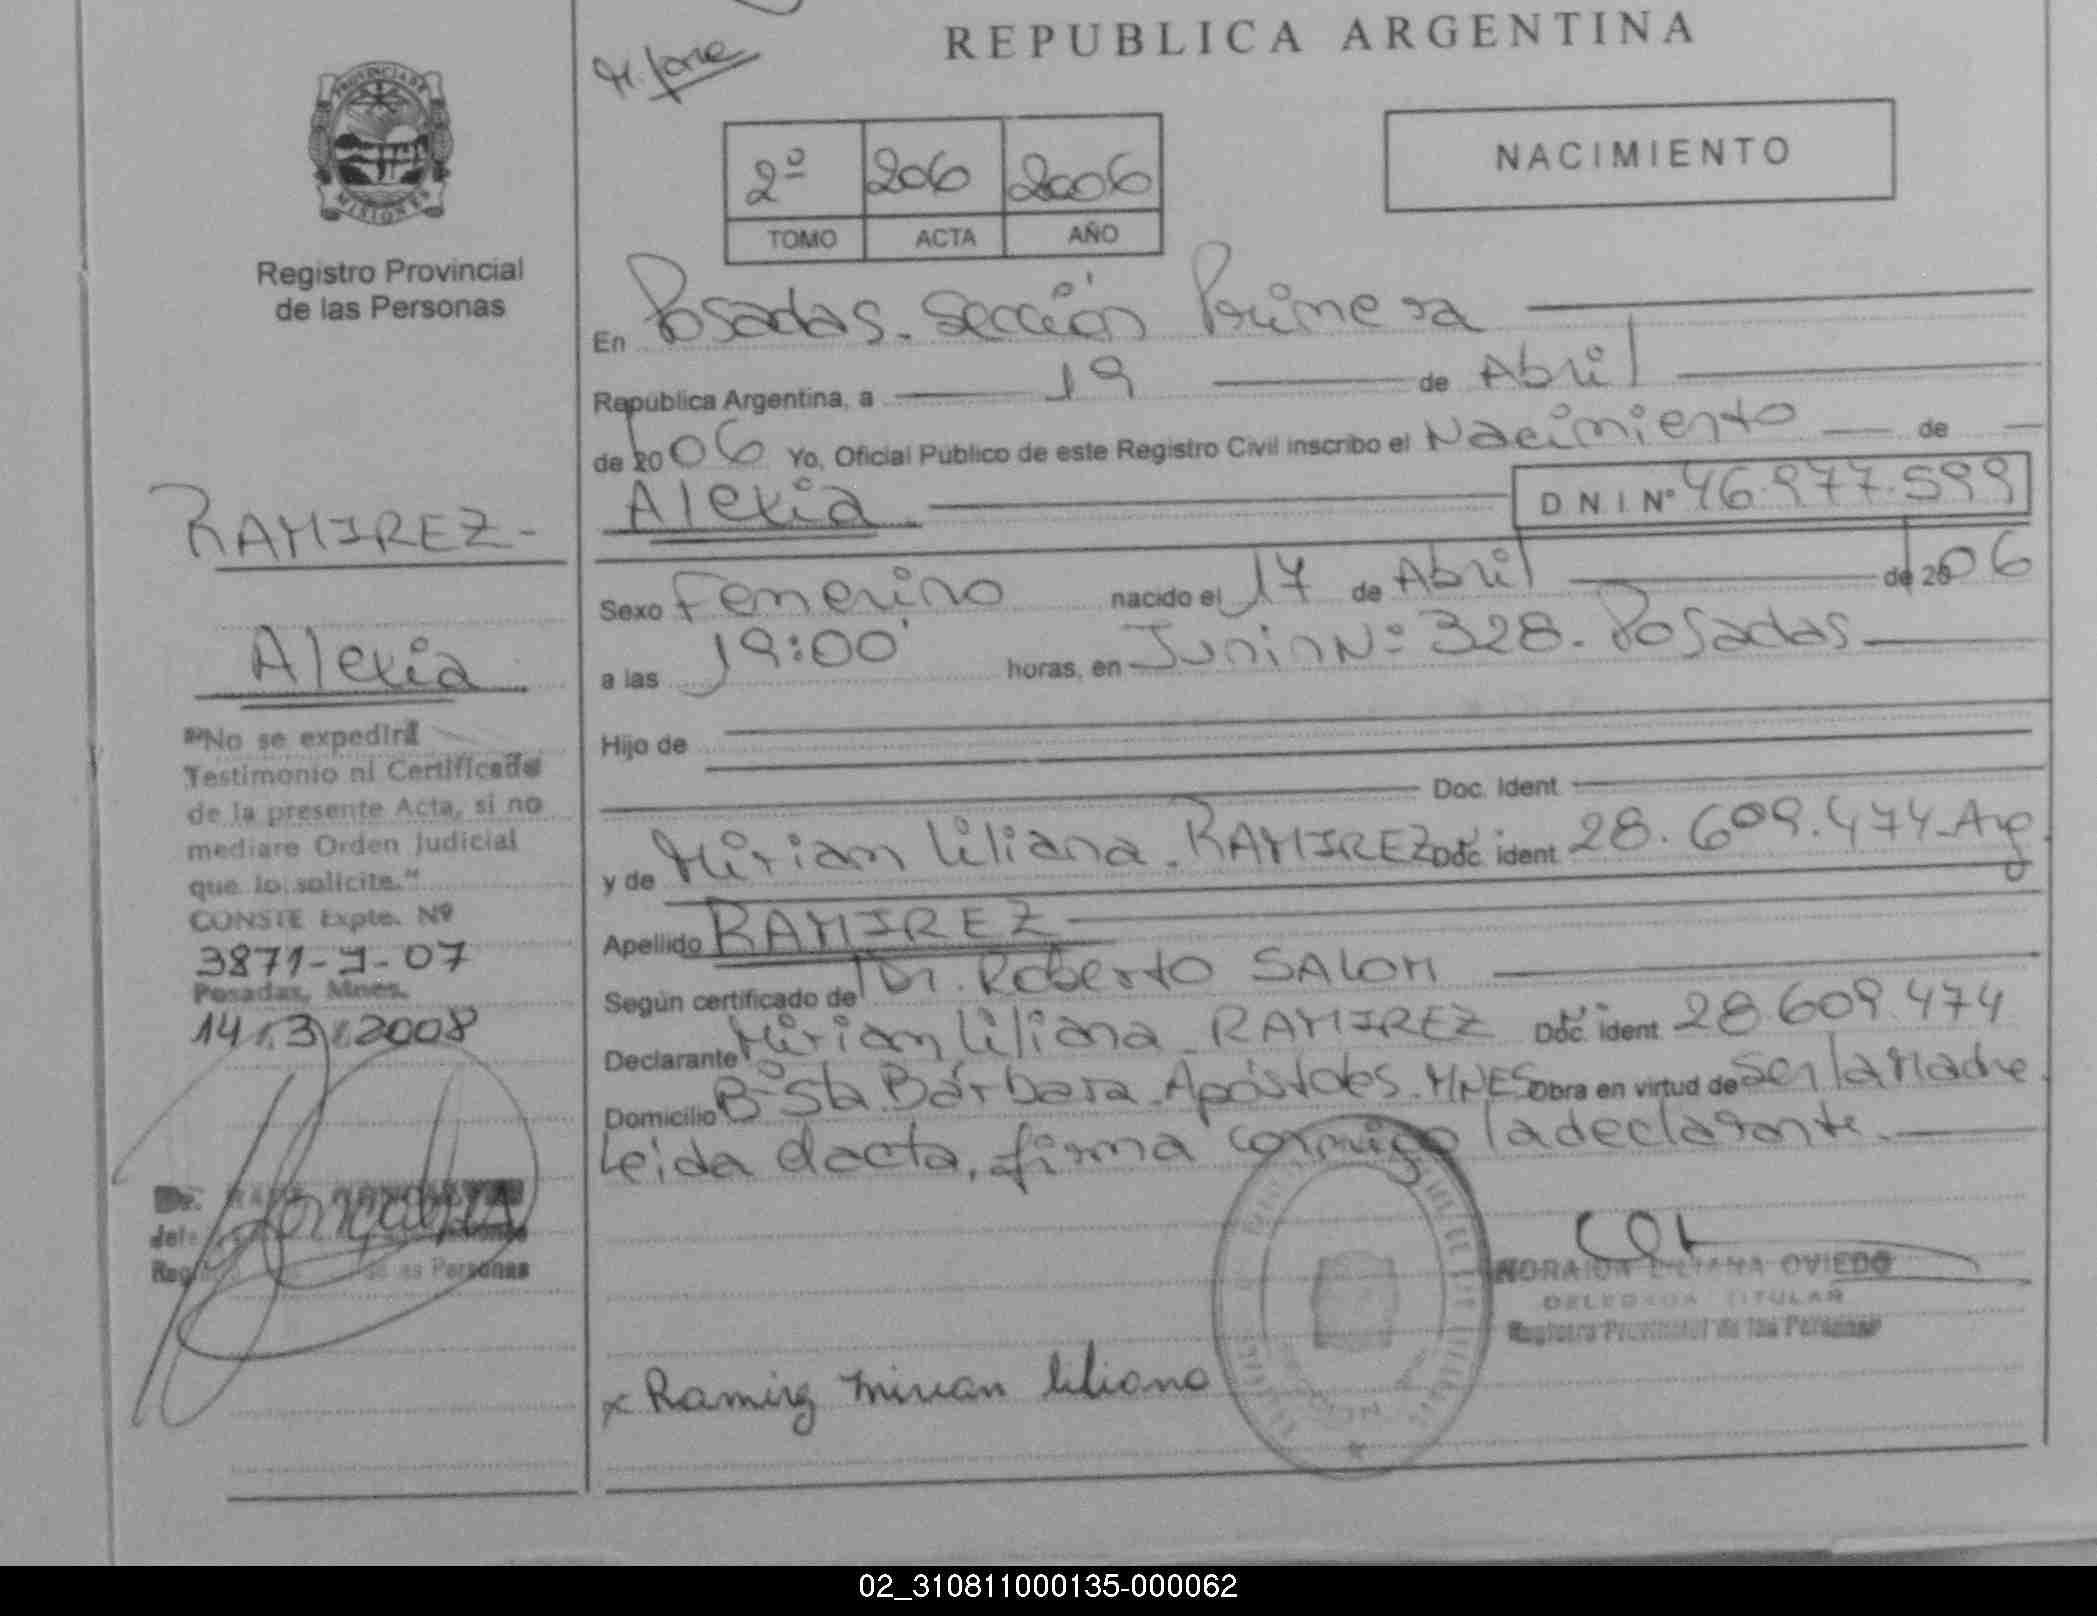 REPUBLICA ARGENTINA
PROVINCIA DE
MISIONES
Registro Provincial
de las Personas
NACIMIENTO
2º 206 2006
TOMO ACTA AÑO
En Posadas. Sección Primera
Republica Argentina, a 19 de Abril
de 2006 Yo, Oficial Público de este Registro Civil inscribo el Nacimiento de
Alexia D N I Nº 46.977.599
Sexo Femenino nacido el 17 de Abril de 2006
a las 19:00 horas, en Junin Nº 328. Posadas
Hijo de
Doc. Ident
y de Mirian Liliana. RAMIREZ Doc. ident 28.609.474 Arg.
Apellido RAMIREZ
Según certificado de Dr. Roberto SALOM
Declarante Mirian Liliana RAMIREZ Doc. ident. 28 609 474
Domicilio Bº Sta. Bárbara. Apóstoles. MNES Obra en virtud de ser la Madre
Leida el acta, firma conmigo la declarante.
RAMIREZ-
Alexia
"No se expedirá
Testimonio ni Certificado
de la presente Acta, si no
mediare Orden Judicial
que lo solicite."
CONSTE Expte. Nº
3871-J-07
Posadas, Mnes.
14/3/2008
de las Personas
LILIANA OVIEDO
DELEGADA TITULAR
Registro Provincial de las Personas
x Ramirez Mirian Liliana
02_310811000135-000062